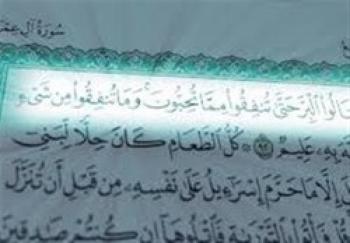 سُورَةُ آلِ عِمْرَ
تَنَالُوا۟ ٱلْبِرَّ حَتَّىٰ تُنفِقُوا۟ مِمَّا تُحِبُّونَ ۚ وَمَا تُنفِقُوا۟ مِن شَىْءٍ
بِهِۦ عَلِيمٌ ﴿٩٢﴾ ۞ كُلُّ ٱلطَّعَامِ كَانَ حِلًّا لِّبَنِىٓ
إِلَّا مَا حَرَّمَ إِسْرَٰٓءِيلُ عَلَىٰ نَفْسِهِۦ مِن قَبْلِ أَن تُنَزَّلَ
قُلْ فَأْتُوا۟ بِٱلتَّوْرَىٰةِ فَٱتْلُوهَآ إِن كُنتُمْ صَٰدِقِينَ